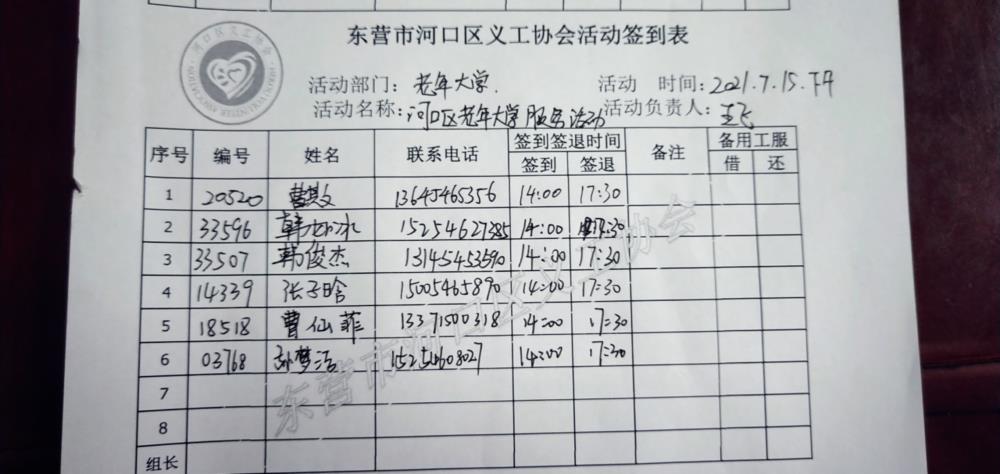 东营市河口区义工协会活动签到表
河口区义工协会
活动部门：老年大学. 活动 时间：2021.7.15.下午
活动名称：河口区老年大学服务活动 活动负责人：王飞
序号 编号 姓名 联系电话 签到签退时间 备注 备用工服
签到 签退 借 还
1 20520 13645465356 14:00 17:30
2 33596 韩如冰 15254627385 14:00 17:30
3 33507 韩俊杰 13145453590 14:00 17:30
4 14339 张子晗 15005465890 14:00 17:30
5 18518 曹仙菲 13371500318 14:00 17:30
6 03768 孙梦洁 15254608027 14:00 17:30
7
8
组长
东营市河口区义工协会